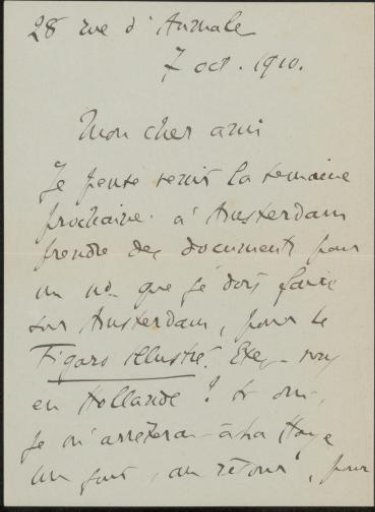 28 rue d'Aumale
7 oct. 1910.
Mon cher ami
Je pense venir la semaine
prochaine à Amsterdam
prendre des documents pour
un no que je dois faire
sur Amsterdam, pour le
Figaro illustré. Etes-vous
en Hollande ? si oui,
je m'arrêterai à La Haye
un jour, au retour, pour